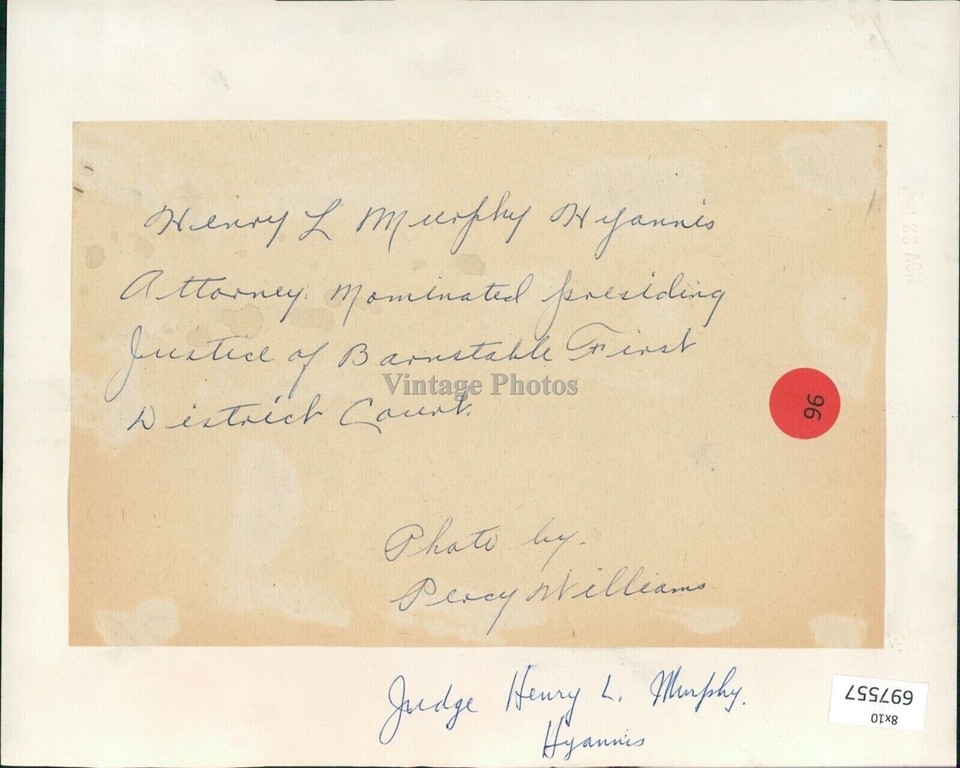 Henry L Murphy Hyannis
Attorney. Nominated presiding
Justice of Barnstable First
Vintage Photos
District Court.
96
Photo by.
Percy Williams
Judge Henry L. Murphy.
Hyannis
697557
8x10
NOV 22